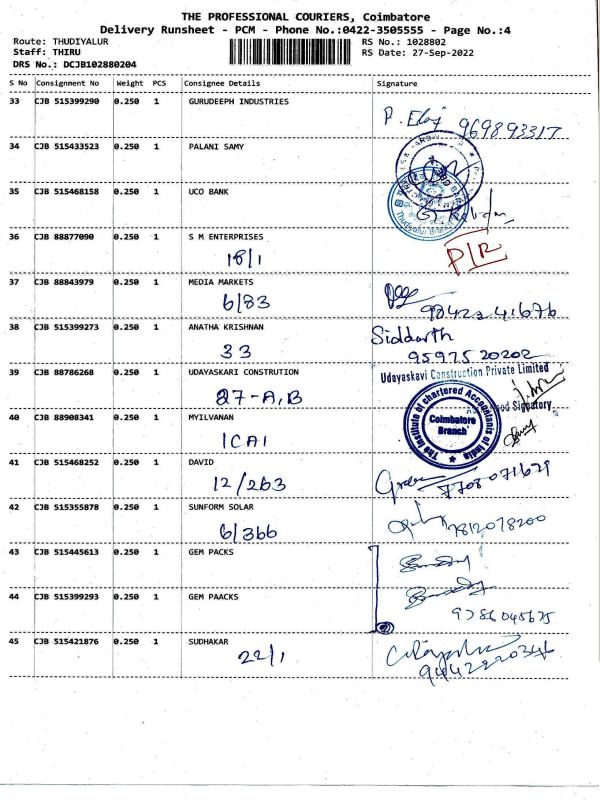 THE PROFESSIONAL COURIERS, Coimbatore
Delivery Runsheet - PCM - Phone No.:0422-3505555 - Page No.:4
Route: THUDIYALUR RS No.: 1028802
Staff: THIRU RS Date: 27-Sep-2022
DRS No.: DCJB102880204
S No Consignment No Weight PCS Consignee Details Signature
33 CJB 515399290 0.250 1 GURUDEEPH INDUSTRIES
969893317
34 CJB 515433523 0.250 1 PALANI SAMY
35 CJB 515468158 0.250 1 UCO BANK
36 CJB 88877090 0.250 1 S M ENTERPRISES
18/1 P/R
37 CJB 88843979 0.250 1 MEDIA MARKETS
6/83
38 CJB 515399273 0.250 1 ANATHA KRISHNAN Siddarth
33 95975 20202
39 CJB 88786268 0.250 1 UDAYASKARI CONSTRUTION Udayaskavi Construction Private Limited
27-A,B Signatory
The Institute of chartered Accountants of India
Coimbatore
Branch
40 CJB 88908341 0.250 1 MYILVANAN
ICAI
41 CJB 515468252 0.250 1 DAVID
12/263 7708071629
42 CJB 515355878 0.250 1 SUNFORM SOLAR
6/366 7812078200
43 CJB 515445613 0.250 1 GEM PACKS
44 CJB 515399293 0.250 1 GEM PAACKS
9786045675
45 CJB 515421876 0.250 1 SUDHAKAR
22/1